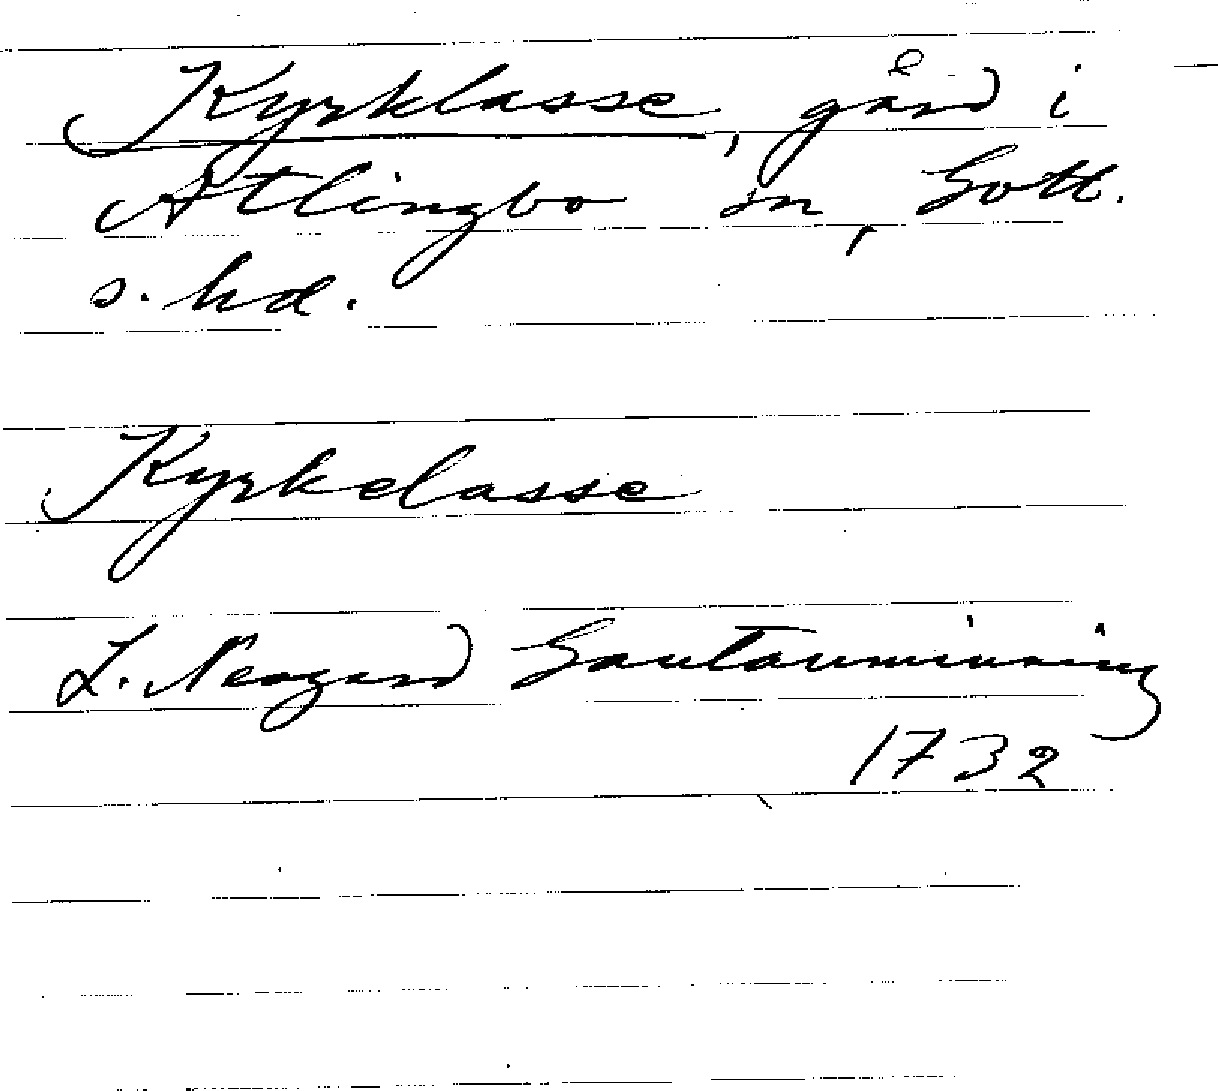 Kyrklasse, gård i
Atlingbo sn, Gotl.
s. hd.
Kyrkelasse
L. Neogard Gautauminning
1732